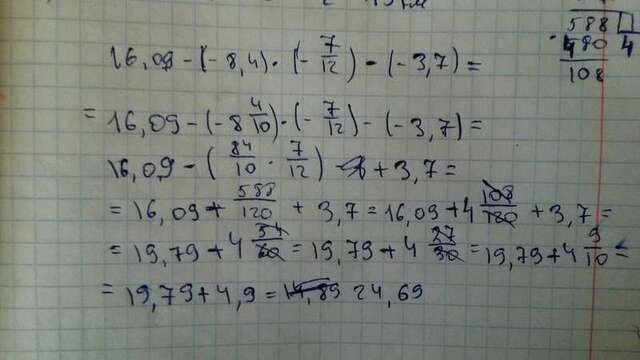 16,09 - (-8,4) · (- 7/12) - (-3,7) =
= 16,09 - (-8 4/10) · (- 7/12) - (-3,7) =
16,09 - (84/10 · 7/12) + 3,7 =
= 16,09 + 588/120 + 3,7 = 16,09 + 4 108/120 + 3,7 =
= 19,79 + 4 54/60 = 19,79 + 4 27/30 = 19,79 + 4 9/10 =
= 19,79 + 4,9 = 24,69
588
- 480 4
108